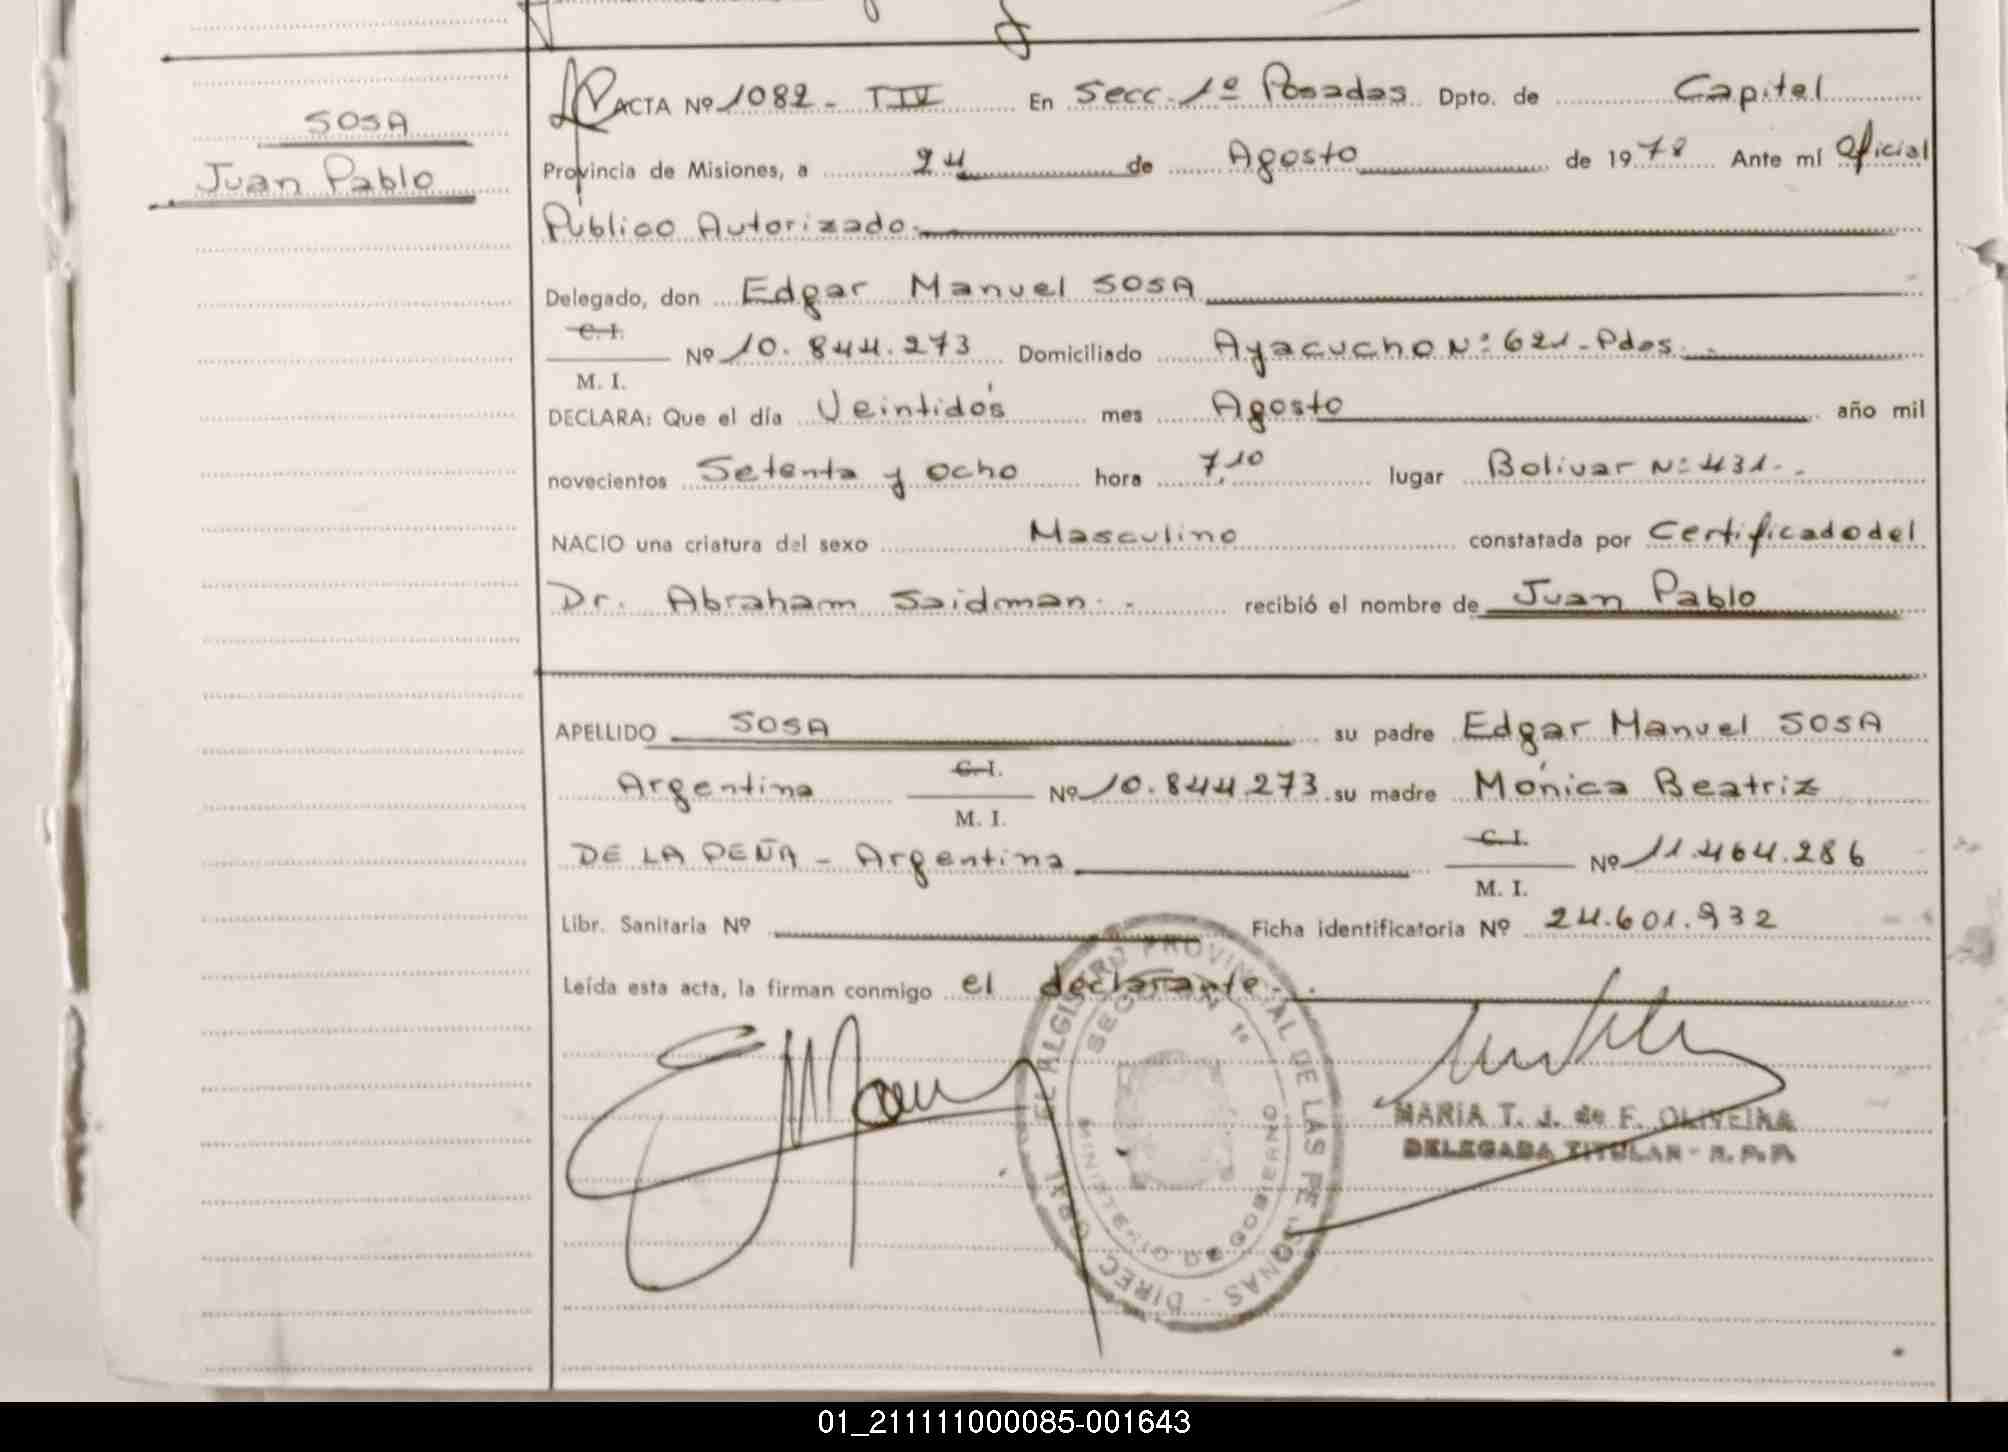 SOSA
Juan Pablo
ACTA Nº 1082 - T IV En Secc. 1º Posadas Dpto. de Capital
Provincia de Misiones, a 24 de Agosto de 1978 Ante mí Oficial
Público Autorizado.
Delegado, don Edgar Manuel SOSA
C. I.
M. I. Nº 10.844.273 Domiciliado Ayacucho Nº 621 - Pdas.
DECLARA: Que el día Veintidós mes Agosto año mil
novecientos Setenta y ocho hora 7,10 lugar Bolivar Nº 431.
NACIO una criatura del sexo Masculino constatada por Certificado del
Dr. Abraham Saidman. recibió el nombre de Juan Pablo
APELLIDO SOSA su padre Edgar Manuel SOSA
Argentina C. I. M. I. Nº 10.844.273 su madre Mónica Beatriz
DE LA PEÑA - Argentina C. I. M. I. Nº 11.464.286
Libr. Sanitaria Nº Ficha identificatoria Nº 24.601.932
Leída esta acta, la firman conmigo el declarante.
PROVINCIAL DE LAS PERSONAS - DIREC
MARIA T. J. de F. OLIVEIRA
DELEGADA TITULAR - R.P.P.
01_211111000085-001643